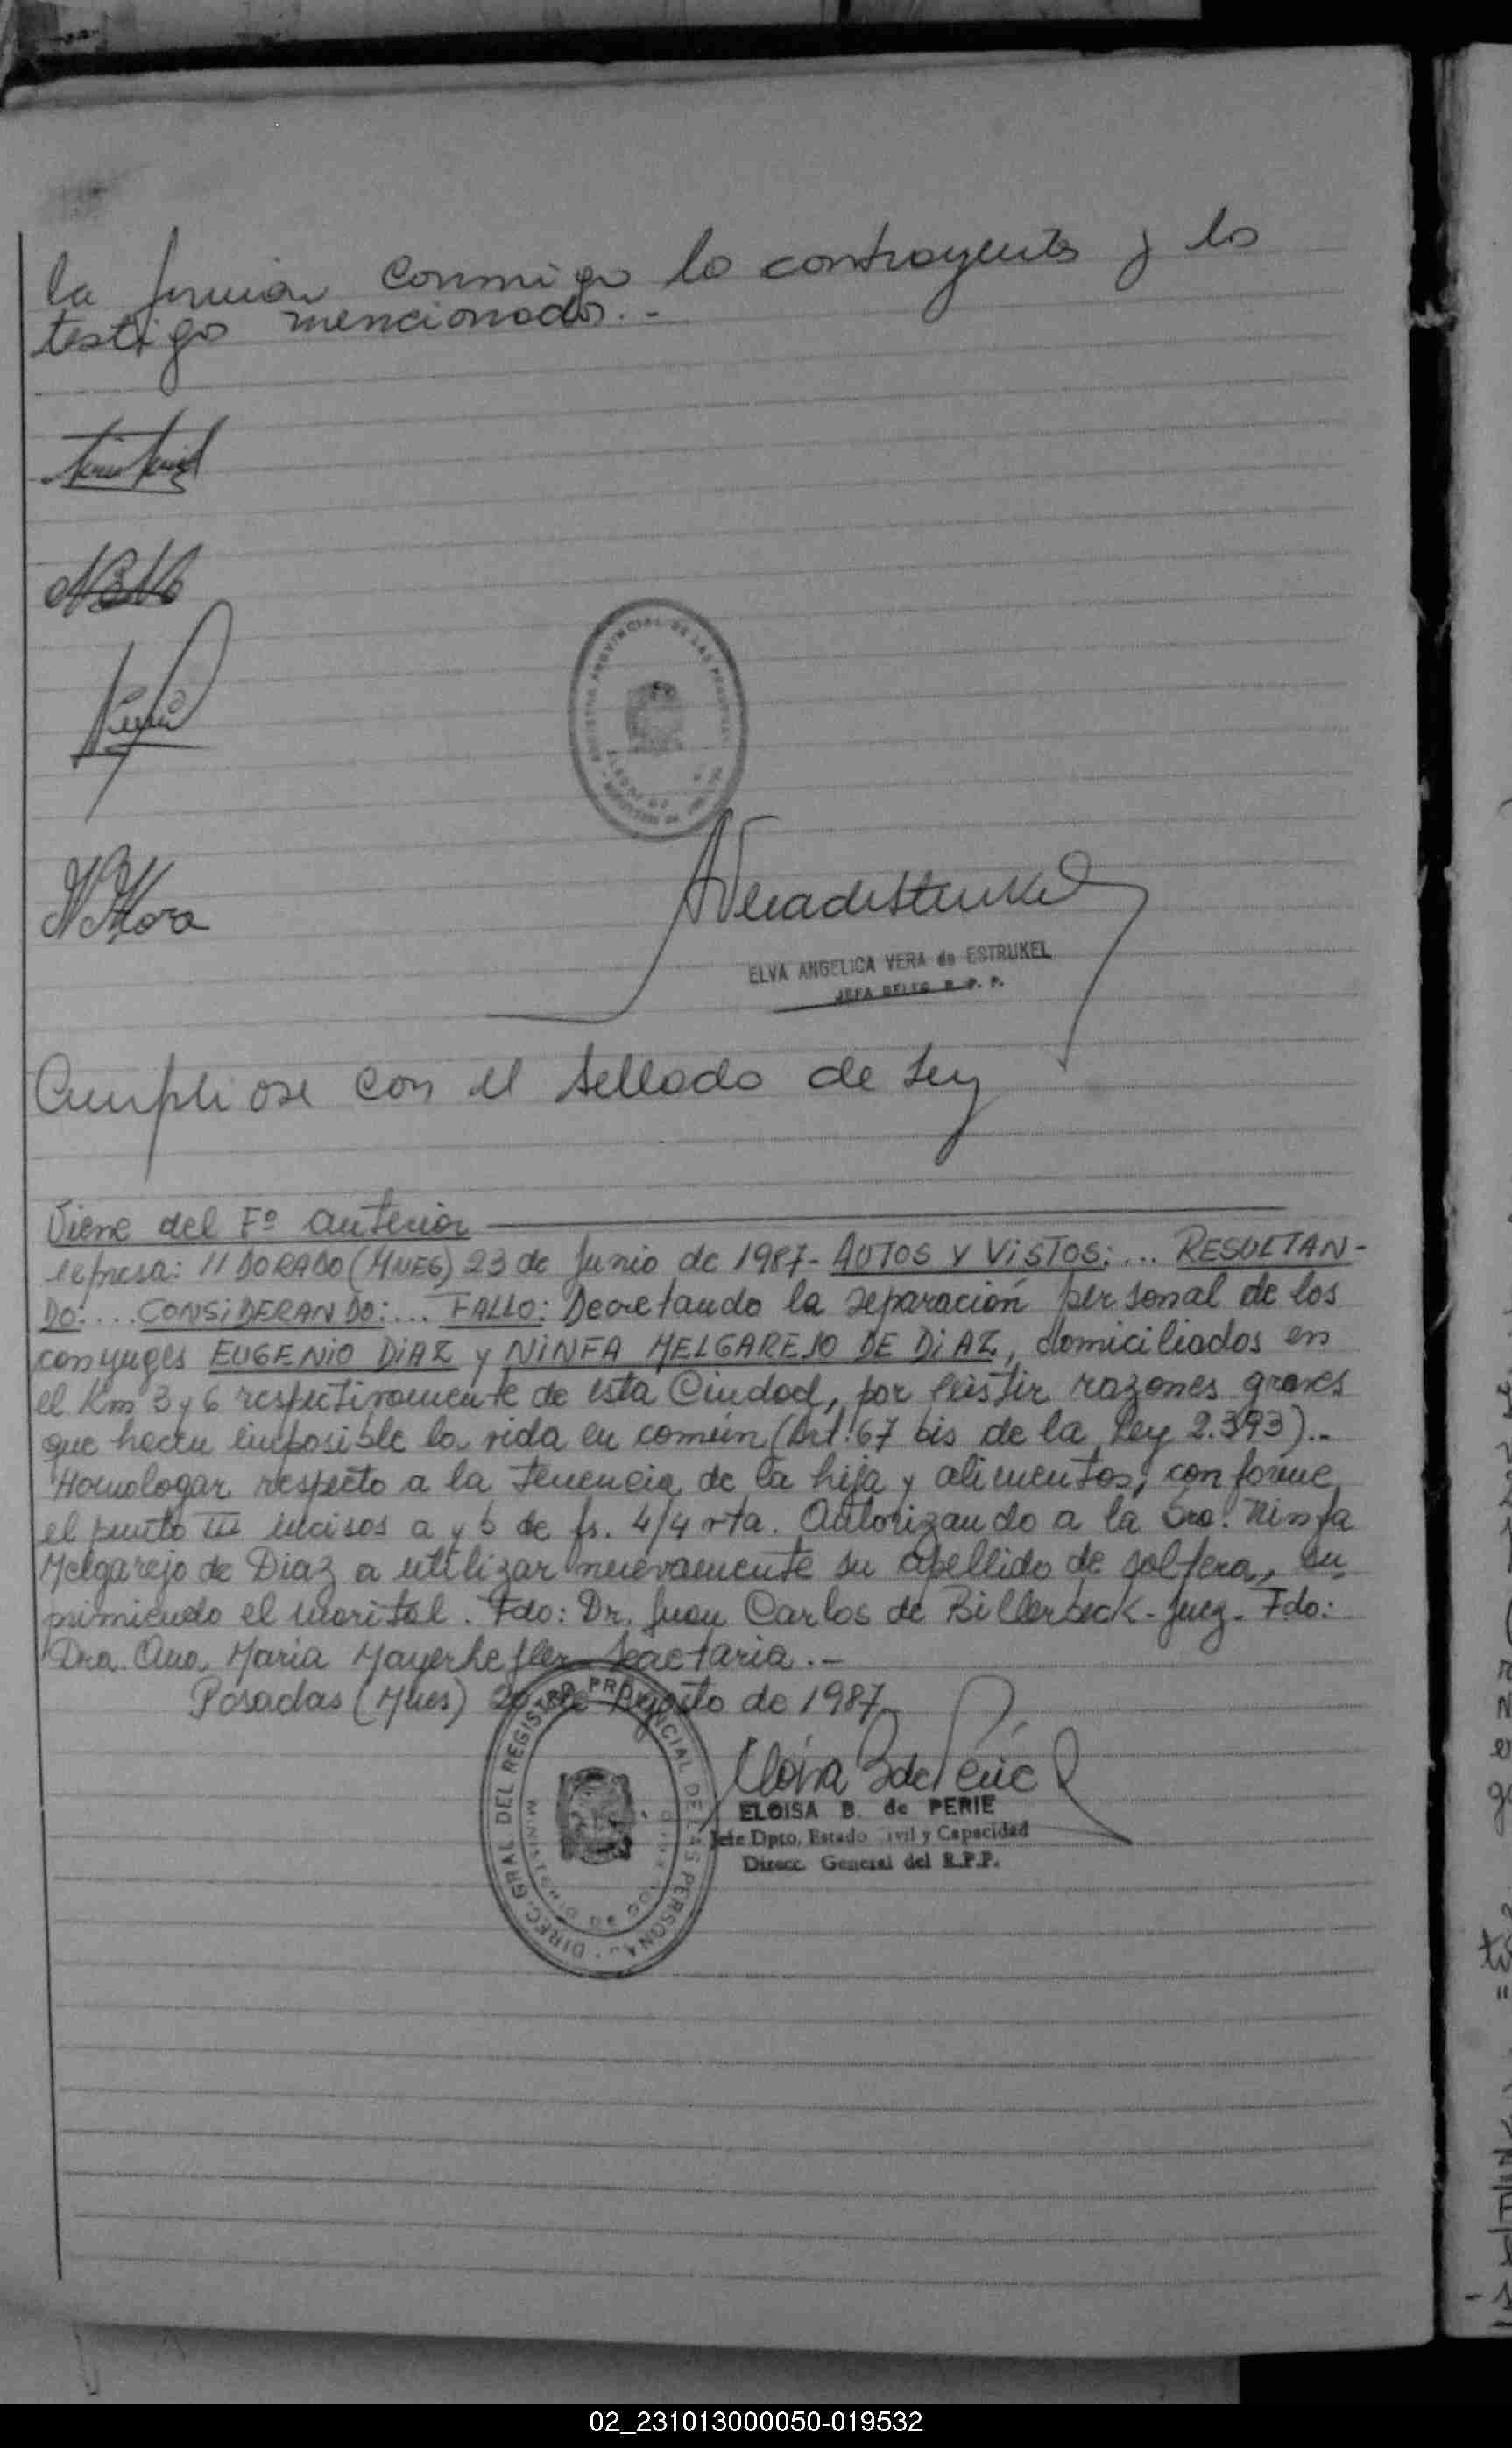 la firman conmigo lo contrayentes y lo
testigo mencionados.-
NMora
REGISTRO PROVINCIAL DE LAS PERSONAS
AVeradeStrukel
ELVA ANGELICA VERA de ESTRUKEL
JEFA DELEG R. P. P.
Cumpliose con el sellado de Ley
Viene del Fº anterior
expresa: "ELDORADO (MNES) 23 de Junio de 1987- AUTOS Y VISTOS:... RESULTAN-
DO:.... CONSiDERANDO:... FALLO: Decretando la separación personal de los
conyuges EUGENIO DiAZ y NiNFA MELGAREJO DE DiAZ, domiciliados en
el Km 3 y 6 respectivamente de esta Ciudad, por existir razones graves
que hacen imposible la vida en común (Art. 67 bis de la Ley 2.393)..
Homologar respecto a la tenencia de la hija y alimentos, conforme
el punto III incisos a y b de fs. 4/4 vta. Autorizando a la Sra. Ninfa
Melgarejo de Diaz a utilizar nuevamente su apellido de soltera, su
primiendo el marital. Fdo: Dr. Juan Carlos de Billerbeck-Juez- Fdo:
Dra. Ana Maria Mayerhefler Secretaria.-
Posadas (Mnes) 20 de Agosto de 1987
Eloisa B de Perie
ELOISA B. de PERIE
Jefe Dpto. Estado Civil y Capacidad
Direcc. General del R.P.P.
DIREC. GRAL DEL REGISTRO PROVINCIAL DE LAS PERSONAS
02_231013000050-019532